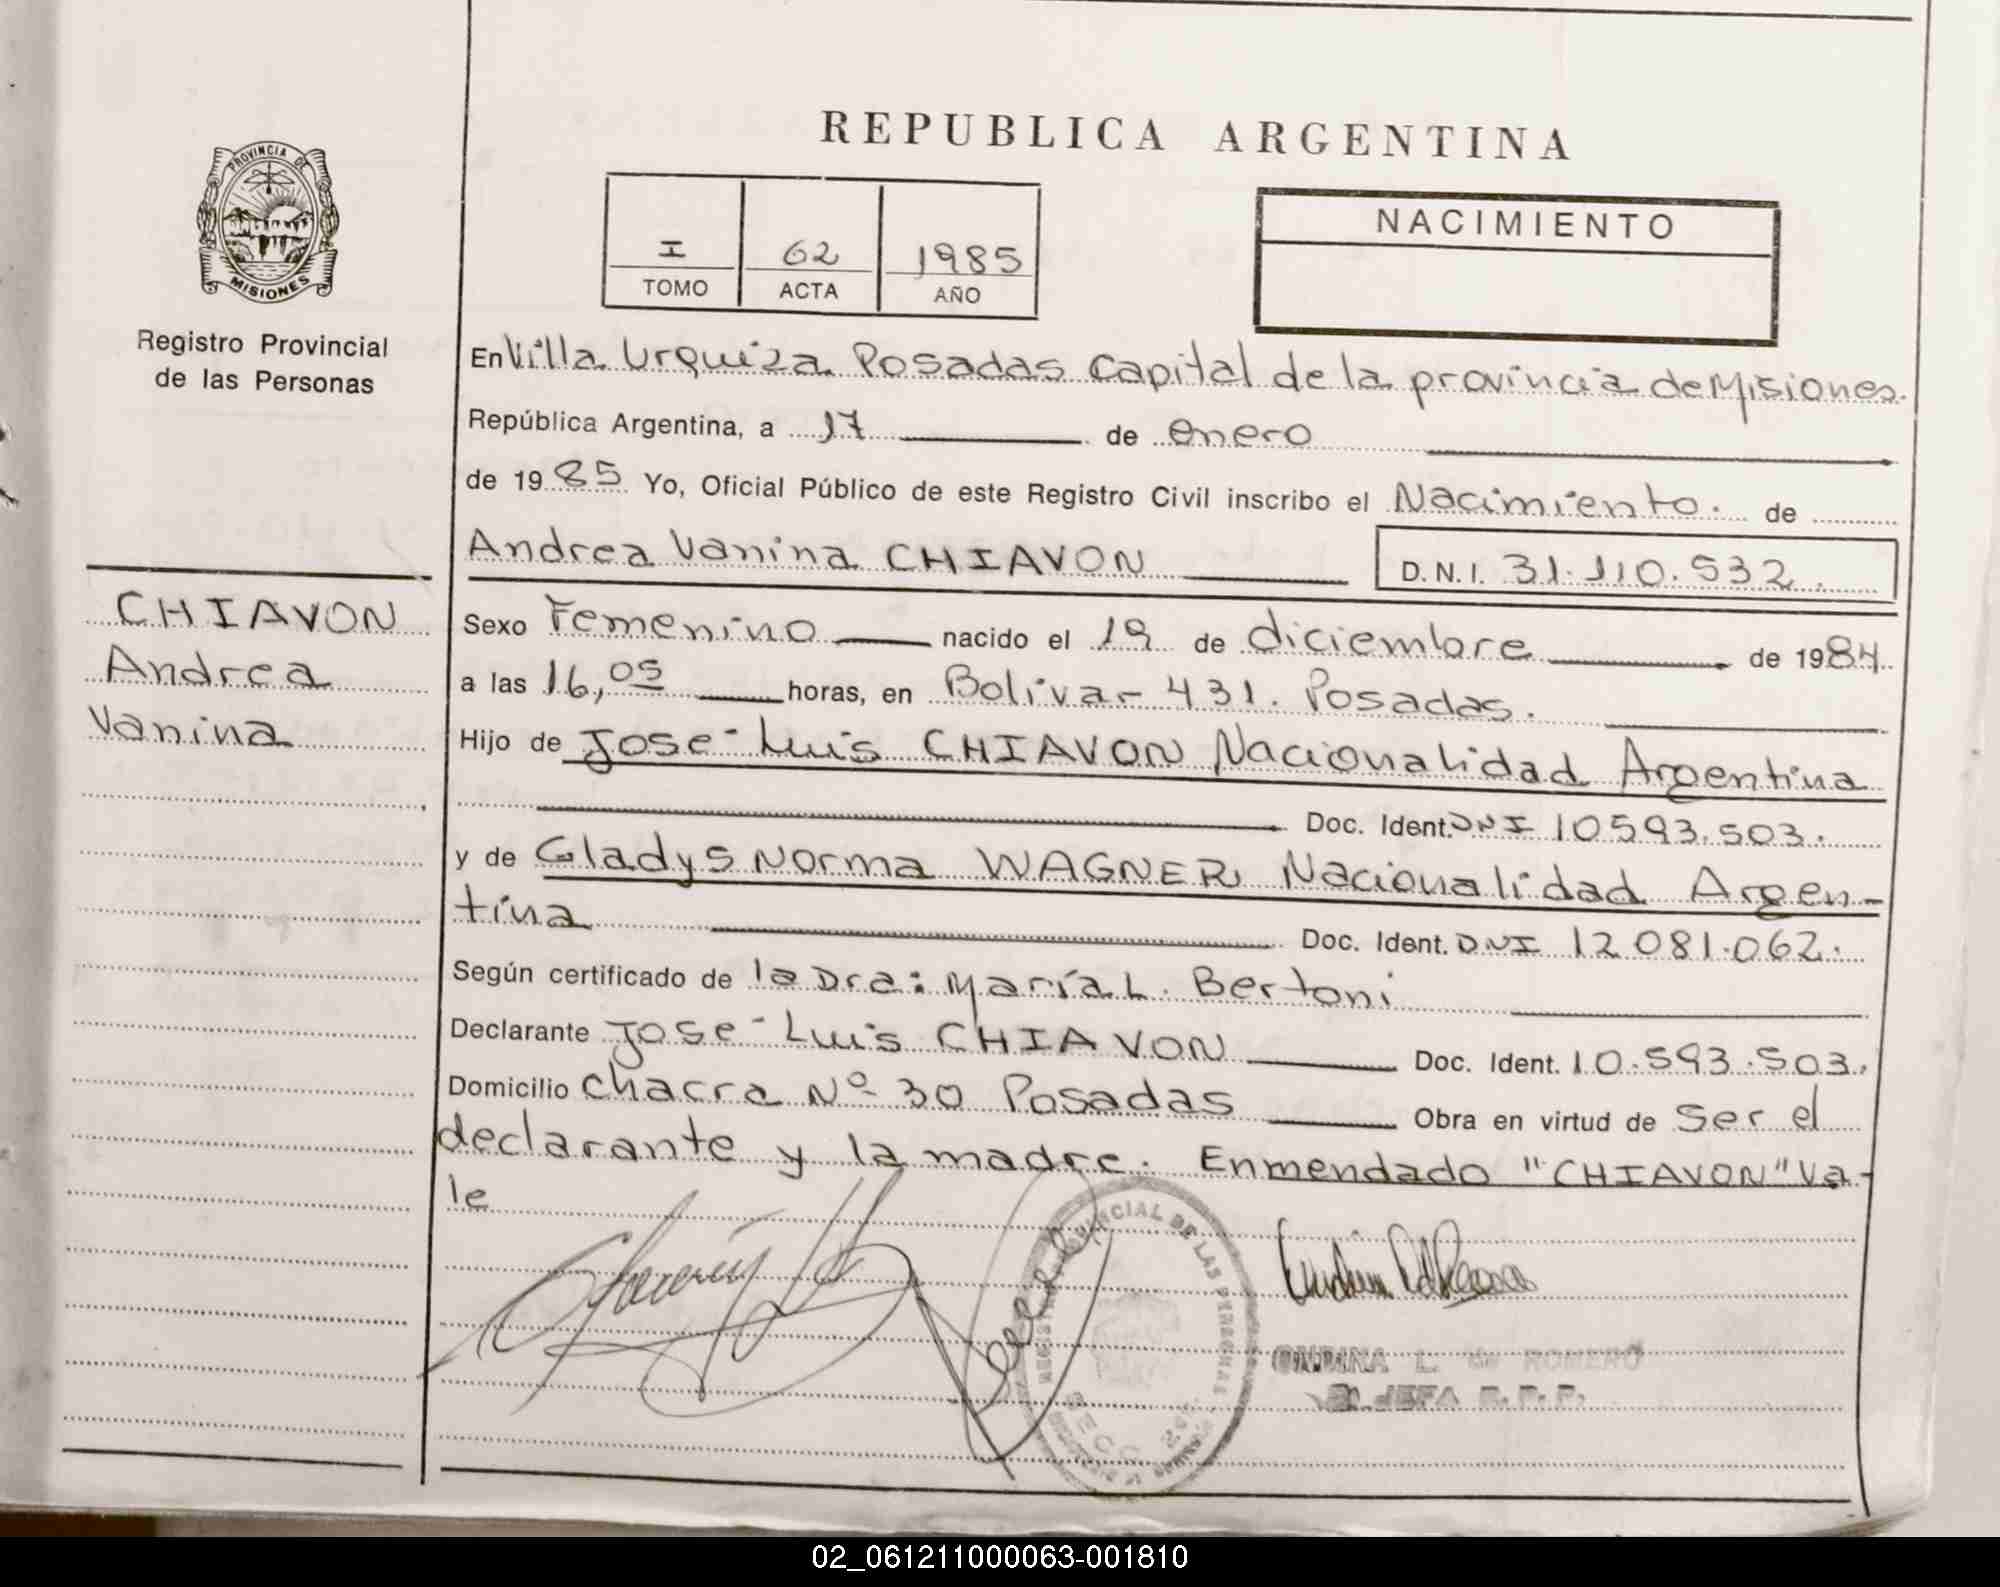 REPUBLICA ARGENTINA
PROVINCIA DE
MISIONES
Registro Provincial
de las Personas
I 62 1985
TOMO ACTA AÑO
NACIMIENTO
En Villa Urquiza Posadas Capital de la provincia de Misiones.
República Argentina, a 17 de enero
de 1985 Yo, Oficial Público de este Registro Civil inscribo el Nacimiento. de
Andrea Vanina CHIAVON D.N.I. 31.110.532.
CHIAVON
Andrea
Vanina
Sexo Femenino nacido el 19 de diciembre de 1984
a las 16,05 horas, en Bolivar 431. Posadas.
Hijo de José Luis CHIAVON Nacionalidad Argentina
Doc. Ident. DNI 10593.503.
y de Gladys Norma WAGNER Nacionalidad Argen-
tina
Doc. Ident. DNI 12081.062.
Según certificado de la Dra: María L. Bertoni
Declarante José Luis CHIAVON Doc. Ident. 10.593.503.
Domicilio Chacra Nº 30 Posadas Obra en virtud de Ser el
declarante y la madre. Enmendado "CHIAVON" Va-
le
PROVINCIAL DE LAS PERSONAS
MISIONES
SECC
ONDINA L. de ROMERO
JEFA R.P.P.
02_061211000063-001810